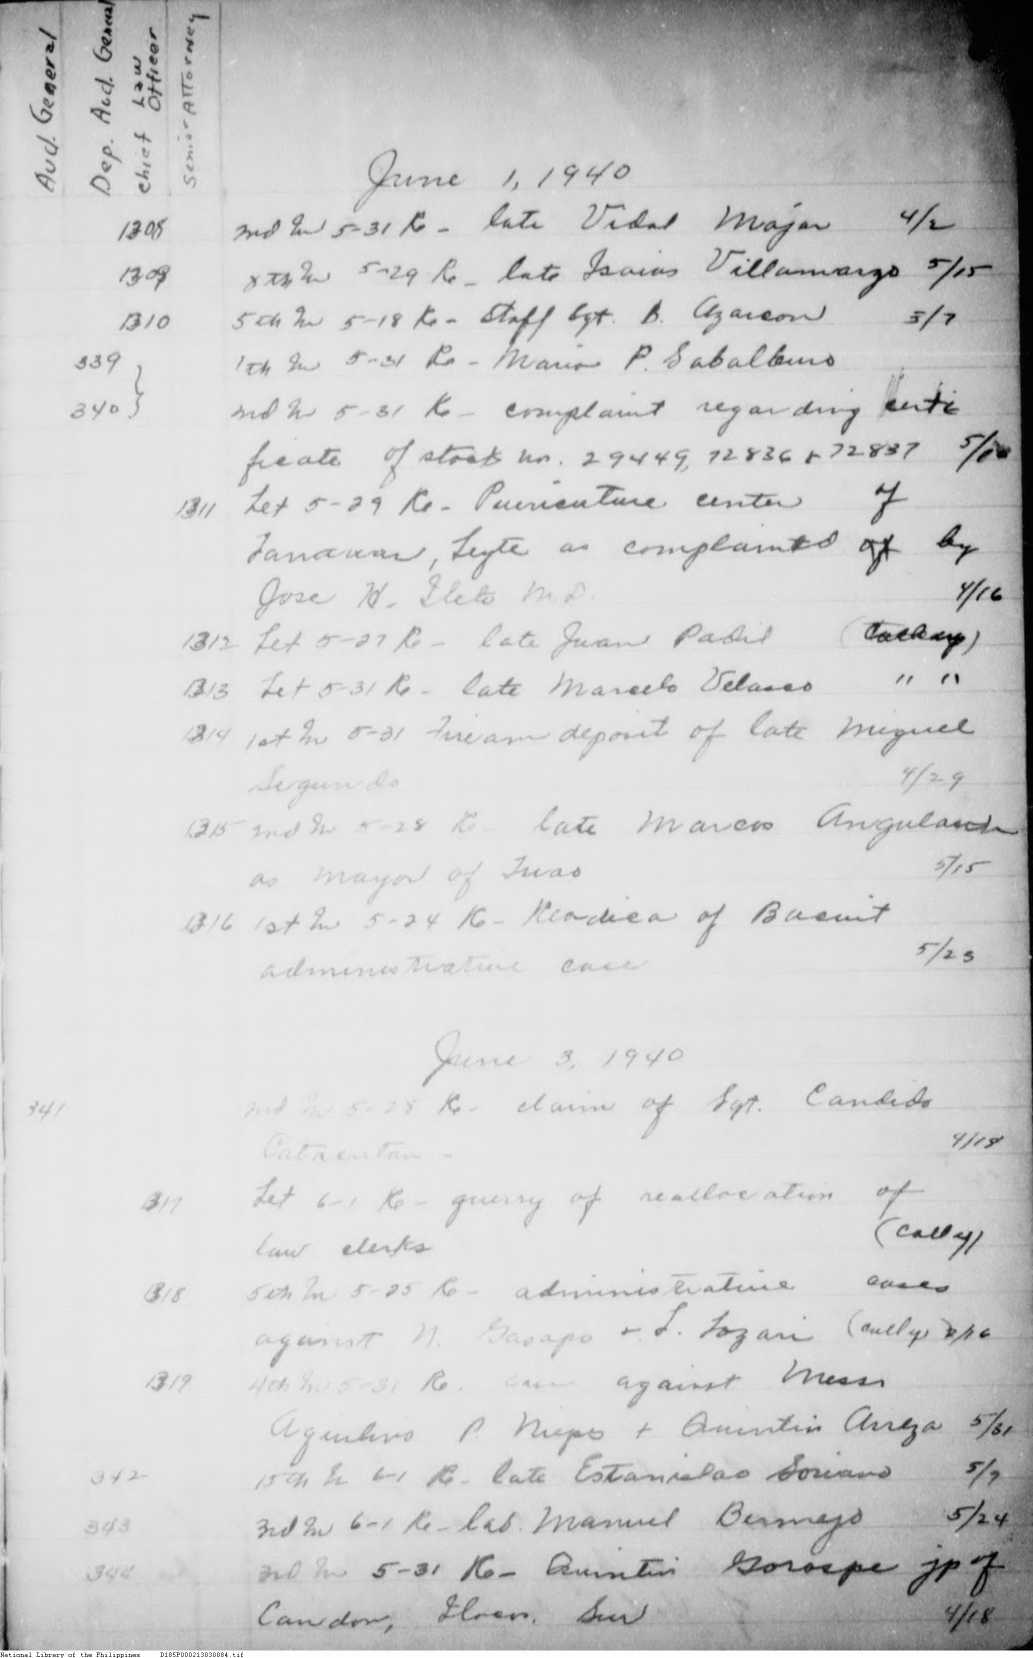 Aud. General
Dep. Aud. General
Chief Law Officer
Senior Attorney
June 1, 1940
1308 2nd In 5-31 Re - late Vidal Major 4/2
1309 8th In 5-29 Re - late Isaias Villamarzo 5/15
1310 5th In 5-18 Re - Staff Sgt. B. Azarcon 5/7
339 In 5-31 Re - Mario P. Sabalburo
340 2nd In 5-31 Re - complaint regarding certi
ficate of stock no. 29449, 72836 + 72837
1311 Let 5-29 Re - Puericulture center of
Tanauan, Leyte as complained by
Jose N. Ileto M.D. 4/16
1312 Let 5-27 Re - late Juan Padil
1313 Let 5-31 Re - late Marcelo Velasco " "
1314 1st In 5-31 Firearm deposit of late Miguel
Segundo 4/29
1315 2nd In 5-28 Re - late Marcos
as mayor of Tuao 5/15
1316 1st In 5-24 Re - of Bacuit
administrative case 5/23
June 3, 1940
341 2nd In 5-28 Re - claim of Sgt. Candido
4/18
1317 Let 6-1 Re - querry of reallocation of
law clerks
1318 5th In 5-25 Re - administrative cases
against N. Gasapo + L. Lozari
1319 4th In 5-31 Re. case against Messrs
P. Niepo + Quintin Arreza 5/31
342 15th In 6-1 Re - late Estanislao Soriano 5/9
343 3rd In 6-1 Re - Lab. Manuel Bermejo 5/24
344 3rd In 5-31 Re - Quintin Gorospe jp of
Candon, Ilocos Sur 4/18
National Library of the Philippines D185P000213830084.tif